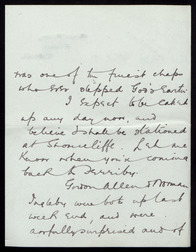 was one of the finest chaps
who ever stepped God's Earth.
I expect to be called
up any day now, and
believe I shall be stationed
at Shorncliffe. Let me
know when you're coming
back to Ferriby.
Gordon Allen & Norman
Ingleby were both up last
week end, and were
awfully surprised and